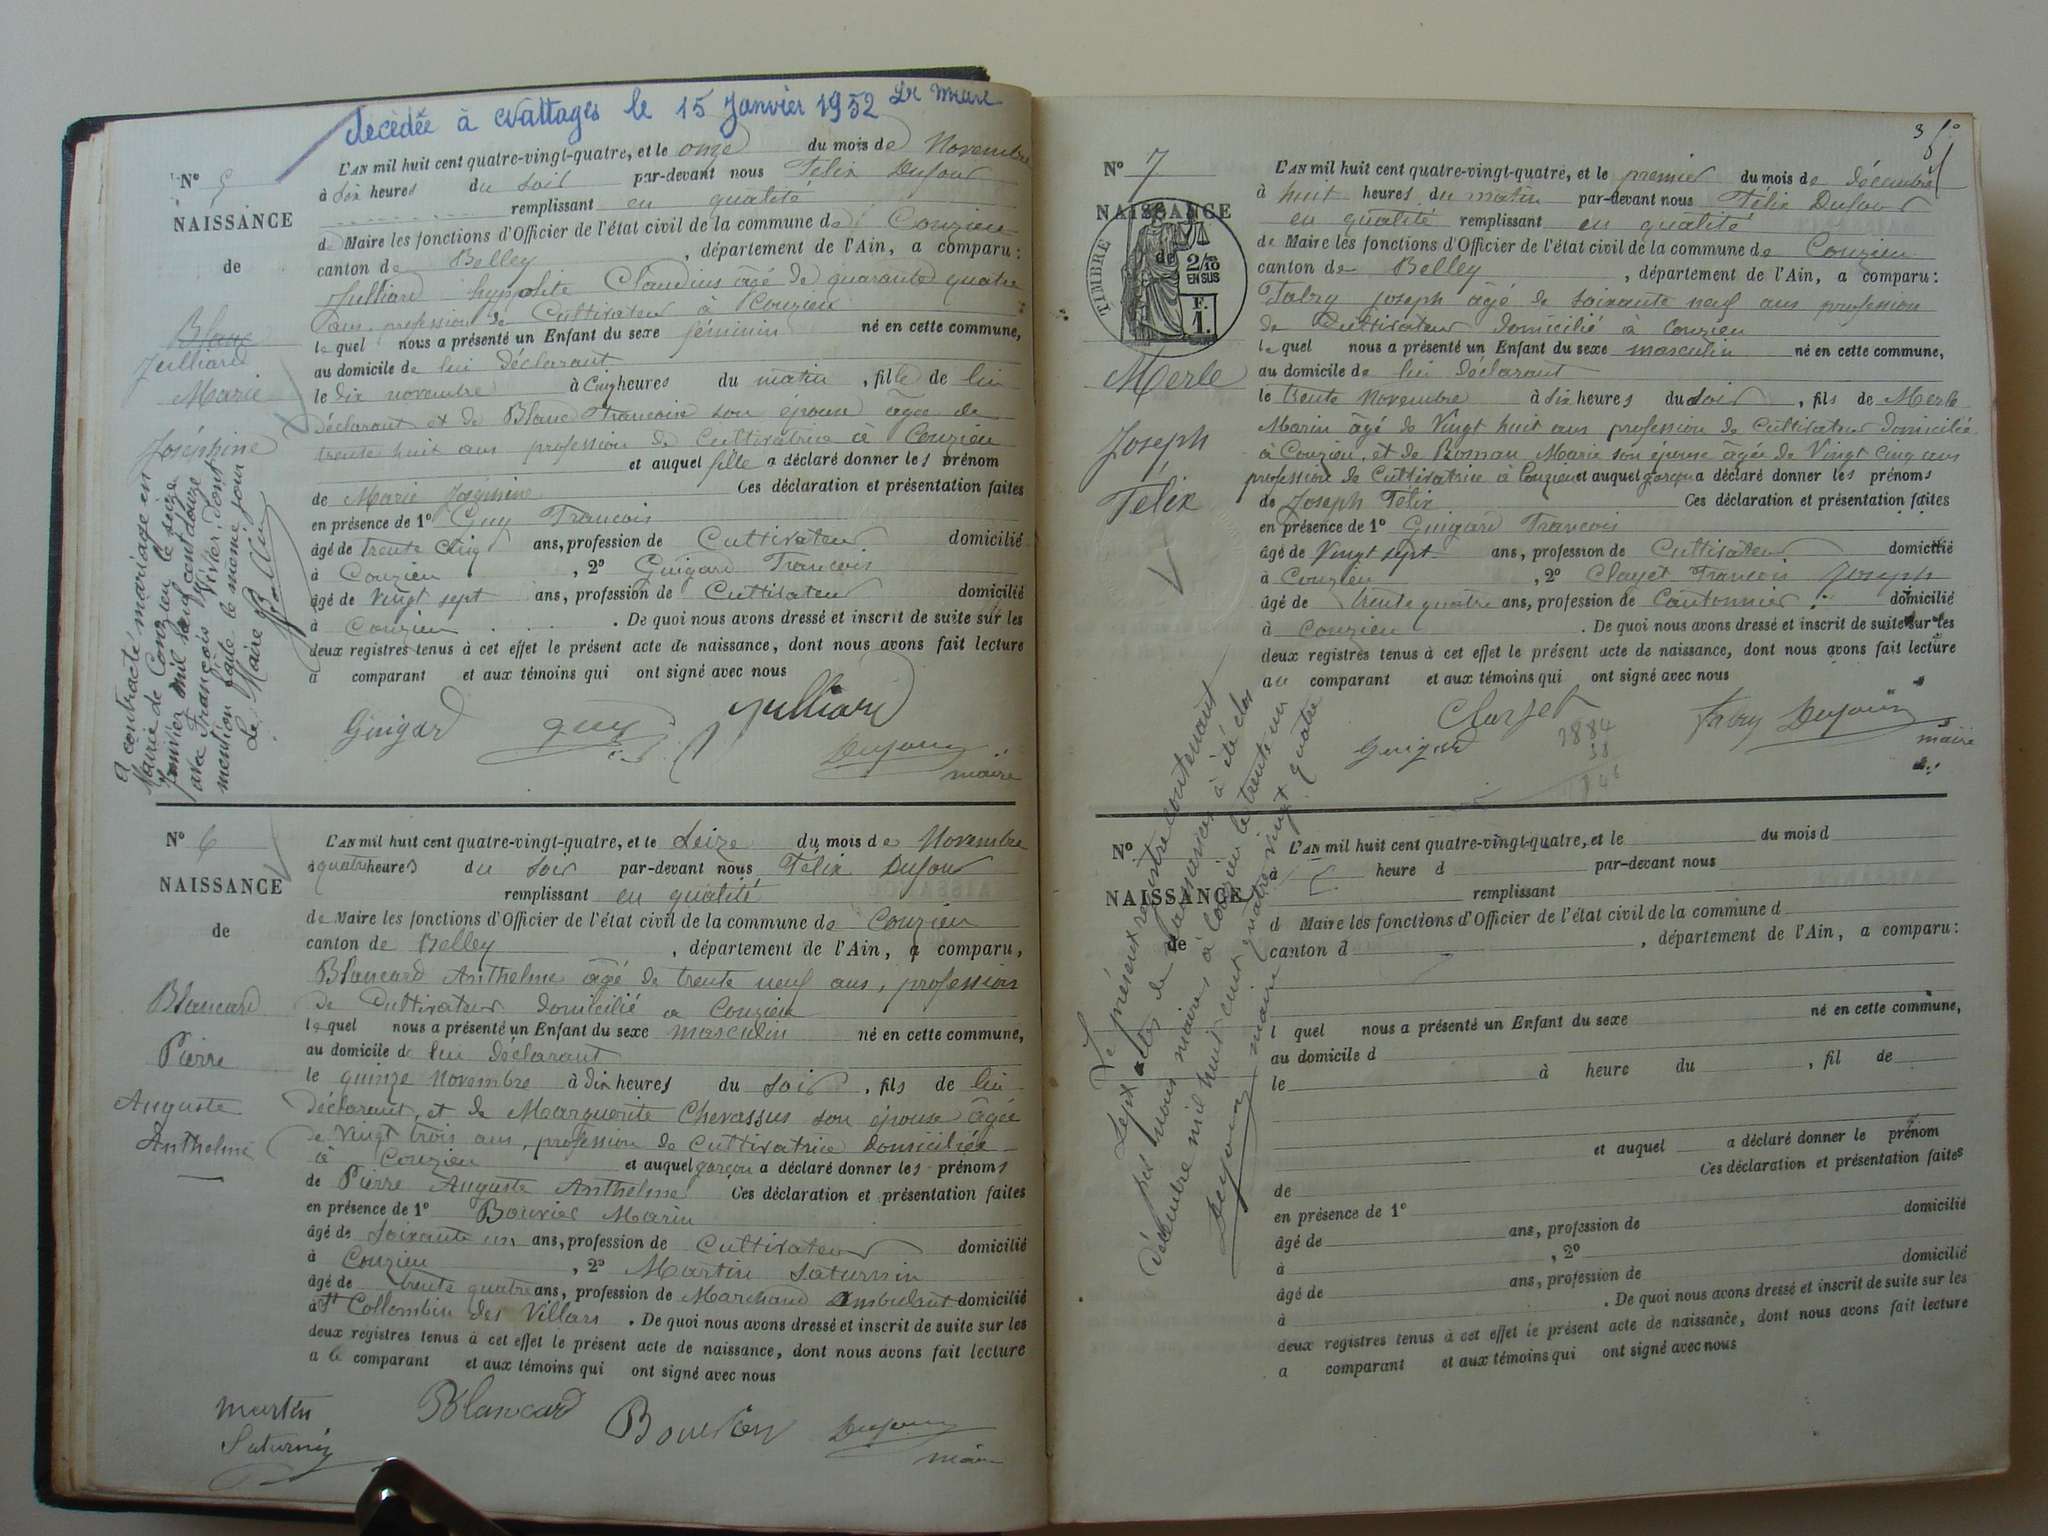 décédée à Nattages le 15 Janvier 1952 Le Maire
N° 5
NAISSANCE
de
Blanc
Julliard
Marie
Joséphine
a contracté mariage en
Mairie de Conzieu le seize
janvier mil neuf cent douze
avec François Vivier. Dont
mention faite le même jour
Le Maire
L'AN mil huit cent quatre-vingt-quatre, et le onze du mois de Novembre
à six heures du soir par-devant nous Félix Dufour
remplissant en qualité
de Maire les fonctions d'Officier de l'état civil de la commune de Conzieu
canton de Belley, département de l'Ain, a comparu:
Julliard hyppolite Claudius âgé de quarante quatre
ans, profession de Cultivateur à Conzieu
lequel nous a présenté un Enfant du sexe féminin né en cette commune,
au domicile de lui Déclarant
le dix novembre à Cinq heures du matin, fille de lui
Déclarant et de Blanc Francoise son épouse âgée de
trente huit ans profession de Cultivatrice à Conzieu
et auquel fille a déclaré donner les prénom
de Marie Joséphine Ces déclaration et présentation faites
en présence de 1° Guy Francois
âgé de trente cinq ans, profession de Cultivateur domicilié
à Conzieu, 2° Guigard Francois
âgé de Vingt sept ans, profession de Cultivateur domicilié
à Conzieu. De quoi nous avons dressé et inscrit de suite sur les
deux registres tenus à cet effet le présent acte de naissance, dont nous avons fait lecture
a comparant et aux témoins qui ont signé avec nous
Guigard Guy Julliard
Dufour
maire
N° 6
NAISSANCE
de
Blancard
Pierre
Auguste
Anthelme
L'AN mil huit cent quatre-vingt-quatre, et le Seize du mois de Novembre
à quatre heures du soir par-devant nous Félix Dufour
remplissant en qualité
de Maire les fonctions d'Officier de l'état civil de la commune de Conzieu
canton de Belley, département de l'Ain, a comparu,
Blancard Anthelme âgé de trente neuf ans, profession
de Cultivateur domicilié a Conzieu
lequel nous a présenté un Enfant du sexe masculin né en cette commune,
au domicile de lui Déclarant
le quinze Novembre à dix heures du soir, fils de lui
Déclarant, et de Marguerite Chevassus son épouse âgée
de Vingt trois ans, profession de Cultivatrice domiciliée
à Conzieu et auquel garçon a déclaré donner les prénoms
de Pierre Auguste Anthelme Ces déclaration et présentation faites
en présence de 1° Bouvier Marin
âgé de Soixante un ans, profession de Cultivateur domicilié
à Conzieu, 2° Martin Saturnin
âgé de trente quatre ans, profession de Marchand Ambulant domicilié
à St Collombin des Villars. De quoi nous avons dressé et inscrit de suite sur les
deux registres tenus à cet effet le présent acte de naissance, dont nous avons fait lecture
a le comparant et aux témoins qui ont signé avec nous
Martin
Saturnin
Blancard
Dufour
maire
3
N° 7
NAISSANCE
de
TIMBRE
2/10
EN SUS
F.
1.
Merle
Joseph
Félix
L'AN mil huit cent quatre-vingt-quatre, et le premier du mois de décembre
à huit heures du matin par-devant nous Félix Dufour
en qualité remplissant en qualité
de Maire les fonctions d'Officier de l'état civil de la commune de Conzieu
canton de Belley, département de l'Ain, a comparu:
Fabry Joseph âgé de soixante neuf ans profession
de Cultivateur domicilié à Conzieu
lequel nous a présenté un Enfant du sexe masculin né en cette commune,
au domicile de lui déclarant
le trente Novembre à six heures du soir, fils de Merle
Marin âgé de Vingt huit ans profession de Cultivateur domicilié
à Conzieu, et de Marie son épouse âgée de Vingt Cinq ans
profession de Cultivatrice à Conzieu et auquel garçon a déclaré donner les prénoms
de Joseph Félix Ces déclaration et présentation faites
en présence de 1° Guigard Francois
âgé de Vingt sept ans, profession de Cultivateur domicilié
à Conzieu, 2° Clayet Francois Joseph
âgé de trente quatre ans, profession de Cantonnier domicilié
à Conzieu. De quoi nous avons dressé et inscrit de suite sur les
deux registres tenus à cet effet le présent acte de naissance, dont nous avons fait lecture
au comparant et aux témoins qui ont signé avec nous
Clayet
Guigard
Fabry Dufour
maire
1884
38
1846
N°
NAISSANCE
de
Le présent registre contenant
Sept actes de Naissances a été clos
par nous maire à Conzieu le trente un
décembre mil huit cent quatre vingt quatre
Dufour maire
L'AN mil huit cent quatre-vingt-quatre, et le du mois d
à heure d par-devant nous
remplissant
d Maire les fonctions d'Officier de l'état civil de la commune d
canton d, département de l'Ain, a comparu:
l quel nous a présenté un Enfant du sexe né en cette commune,
au domicile d
le à heure du, fil de
et auquel a déclaré donner le prénom
de Ces déclaration et présentation faites
en présence de 1°
âgé de ans, profession de domicilié
à, 2°
âgé de ans, profession de domicilié
à. De quoi nous avons dressé et inscrit de suite sur les
deux registres tenus à cet effet le présent acte de naissance, dont nous avons fait lecture
a comparant et aux témoins qui ont signé avec nous